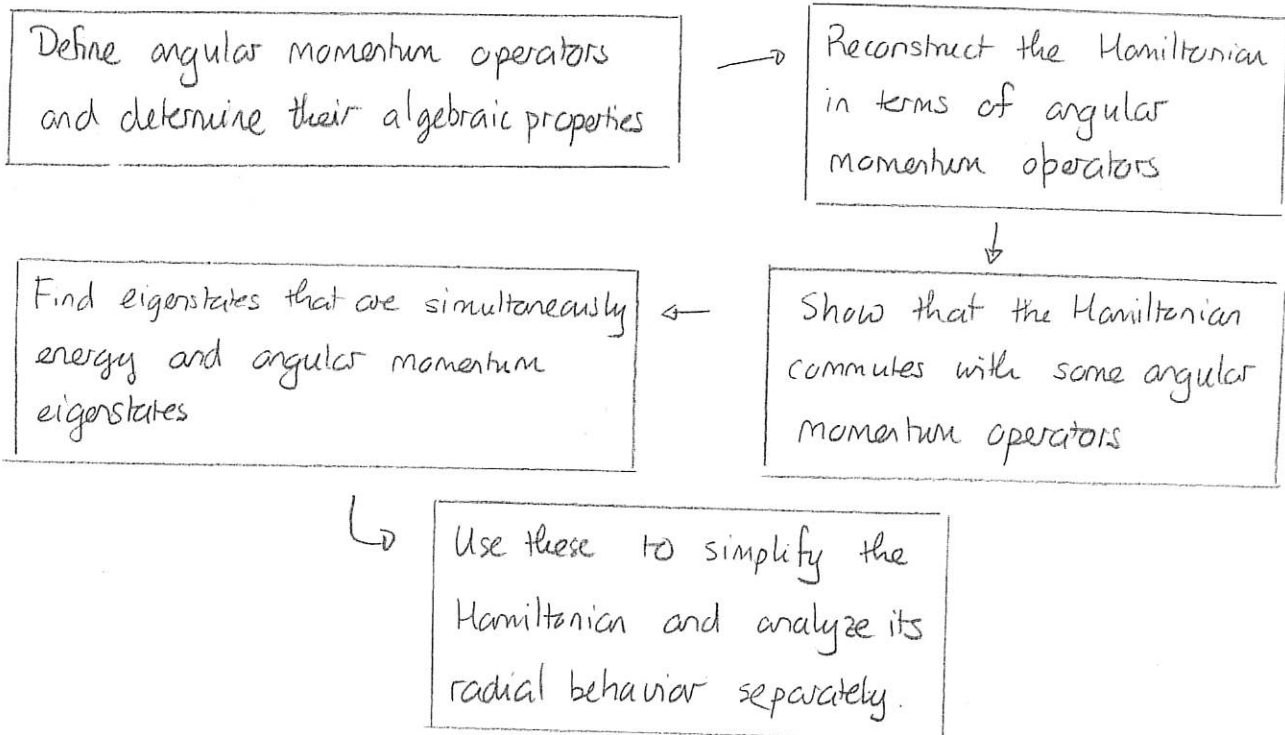 Define angular momentum operators
and determine their algebraic properties
Reconstruct the Hamiltonian
in terms of angular
momentum operators
Show that the Hamiltonian
commutes with some angular
momentum operators
Find eigenstates that are simultaneously
energy and angular momentum
eigenstates
Use these to simplify the
Hamiltonian and analyze its
radial behavior separately.